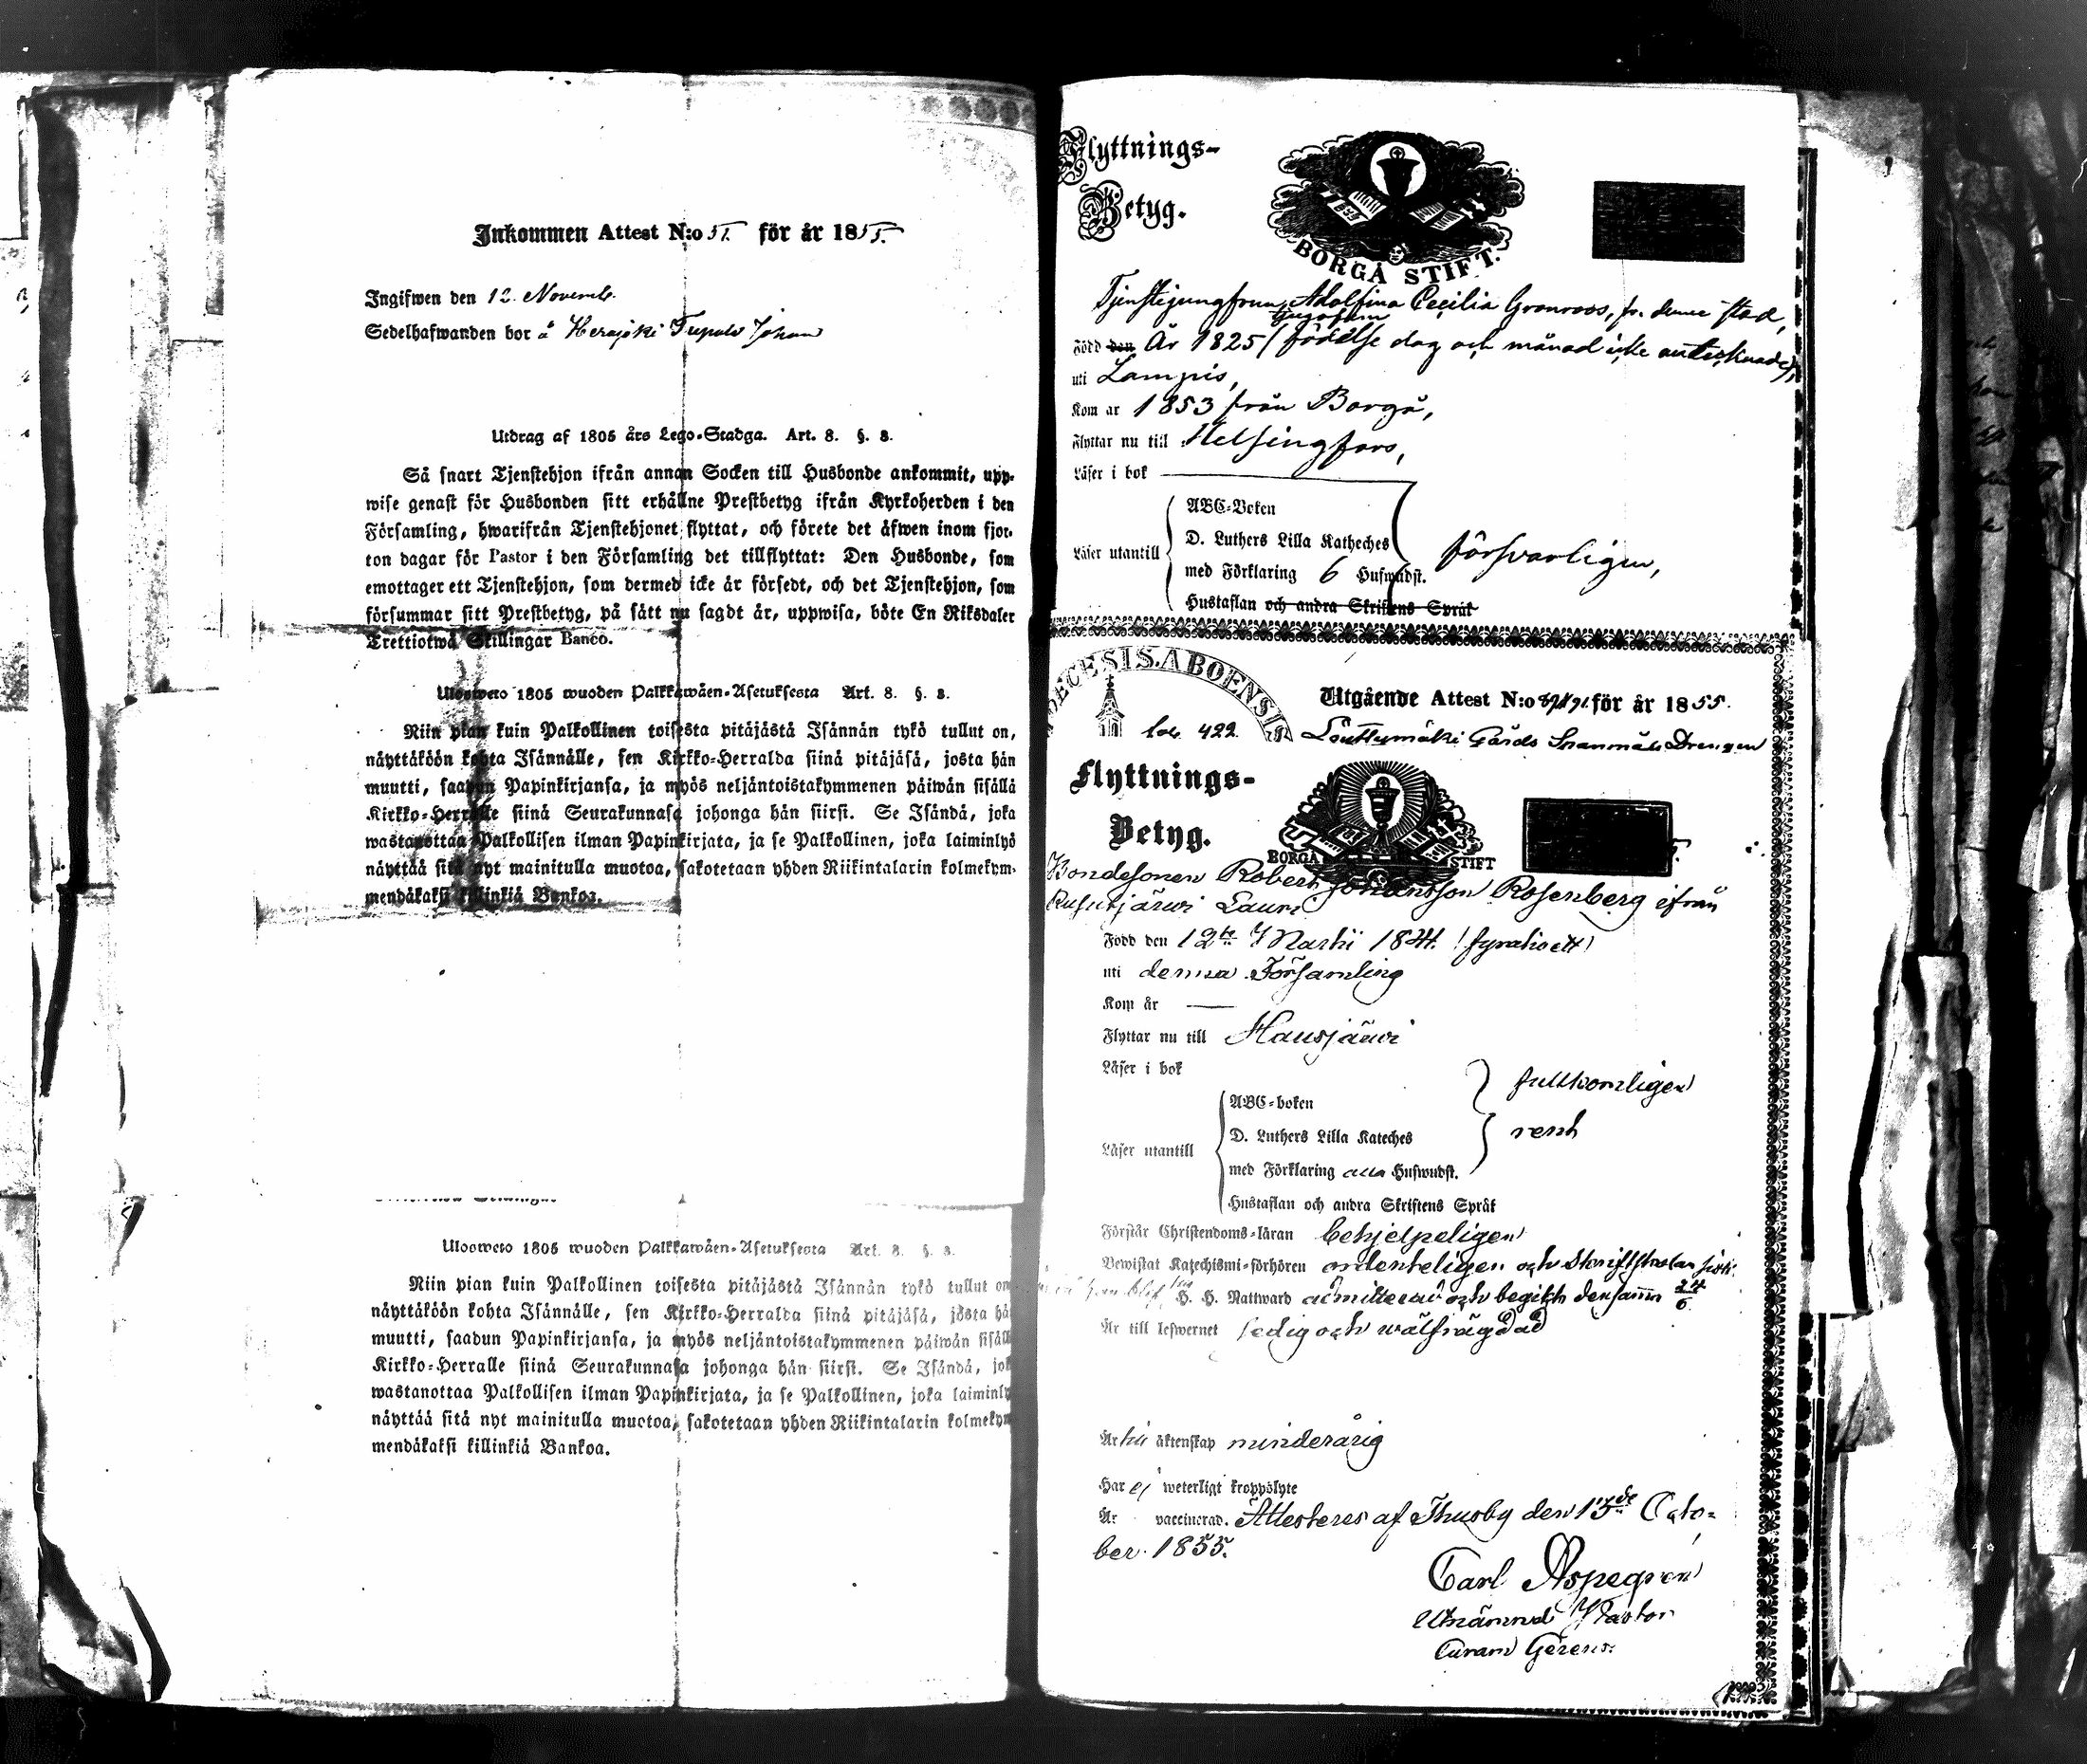 Inkommen Attest N:o 51. för år 1855.
Ingifwen den 12. Novemb.
Sedelhafwanden bor å Herajoki Tupala Johan
Utdrag af 1805 års Lego-Stadga. Art. 8. §. 8.
Så snart Tjenstehjon ifrån annan Socken till Husbonde ankommit, upp-
wise genast för Husbonden sitt erhållne Prestbetyg ifrån Kyrkoherden i den
Församling, hwarifrån Tjenstehjonet flyttat, och förete det äfwen inom fjor-
ton dagar för Pastor i den Församling det tillflyttat: Den Husbonde, som
emottager ett Tjenstehjon, som dermed icke är försedt, och det Tjenstehjon, som
försummar sitt Prestbetyg, på sätt nu sagdt är, uppwisa, böte En Riksdaler
Trettiotwå Skillingar Banco.
Ulosweto 1805 wuoden Palkkawäen-Asetuksesta Art. 8. §. 8.
Niin pian kuin Palkollinen toisesta pitäjästä Isännän tykö tullut on,
näyttäköön kohta Isännälle, sen Kirkko-Herralda siinä pitäjäsä, josta hän
muutti, saadun Papinkirjansa, ja myös neljäntoistakymmenen päiwän sisällä
Kirkko-Herralle siinä Seurakunnasa johonga hän siirsi. Se Isändä, joka
wastanottaa Palkollisen ilman Papinkirjata, ja se Palkollinen, joka laiminlyö
näyttää sitä nyt mainitulla muotoa, sakotetaan yhden Riikintalarin kolmekym-
mendäkaksi killinkiä Bankoa.
Ulosweto 1805 wuoden Palkkawäen-Asetuksesta Art. 8. §. 8.
Niin pian kuin Palkollinen toisesta pitäjästä Isännän tykö tullut on
näyttäköön kohta Isännälle, sen Kirkko-Herralda siinä pitäjäsä, josta hä
muutti, saadun Papinkirjansa, ja myös neljäntoistakymmenen päiwän sisäll
Kirkko-Herralle siinä Seurakunnasa johonga hän siirsi. Se Isändä, jok
wastanottaa Palkollisen ilman Papinkirjata, ja se Palkollinen, joka laiminly
näyttää sitä nyt mainitulla muotoa, sakotetaan yhden Riikintalarin kolmekym
mendäkaksi killinkiä Bankoa.
Flyttnings-
Betyg.
BORGÅ STIFT.
Tjenstejungfrun Adolfina Cecilia Gronroos, fr. denne stad,
Född den År 1825 (födelse dag och månad icke antecknade)
uti Lampis,
Kom år 1853 från Borgå,
Flyttar nu till Helsingfors,
Läser i bok
ABC-Boken
D. Luthers Lilla Katheches
Läser utantill
med Förklaring 6 Hufwudst.
försvarligen,
Hustaflan och andra Skriftens Språk
ECESIS. ABOENSI
422.
Utgående Attest N:o för år 1855.
Gårds Drengen
Flyttnings-
Betyg.
BORGÅ STIFT
Bondesonen Robert Johansson Rosenberg ifrån
Rusutjärwi Lauri
Född den 12te Martii 1841. (fyratioett)
uti denna Församling
Kom år
Flyttar nu till Hausjärwi
Läser i bok
fullkomligen
ABC-boken
D. Luthers Lilla Kateches
rent
Läser utantill
med Förklaring alla Hufwudst.
Hustaflan och andra Skriftens Språk
Förstår Christendoms-läran behjelpeligen
Bewistat Katechismi-förhören ordenteligen och Skriftskolan
H. H. Nattward admitterad och begått densamm 24/6
Är till lefwernet ledig och wälfrägdad
Är till äktenskap minderårig
Har ej weterligt kroppslyte
Är vaccinerad. Attesteres af Thusby den 13de Octo-
ber. 1855.
Carl Aspegren
Utnämnd Pastor
Curam Gerens.